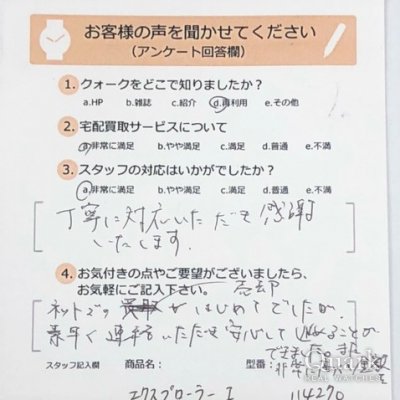 お客様の声を聞かせてください
(アンケート回答欄)
1. クォークをどこで知りましたか?
a.HP b.雑誌 c.紹介 d.再利用 e.その他
2. 宅配買取サービスについて
a.非常に満足 b.やや満足 c.満足 d.普通 e.不満
3. スタッフの対応はいかがでしたか?
a.非常に満足 b.やや満足 c.満足 d.普通 e.不満
丁寧に対応いただき感謝
いたします.
4. お気付きの点やご要望がございましたら、
お気軽にご記入下さい。 売却
ネットでの がはじめてでしたが、
素早く連絡いただき安心して ことが
できました。また
スタッフ記入欄 商品名: 型番: 非常
エクスプローラー I 114270
Quark
REAL WATCHES